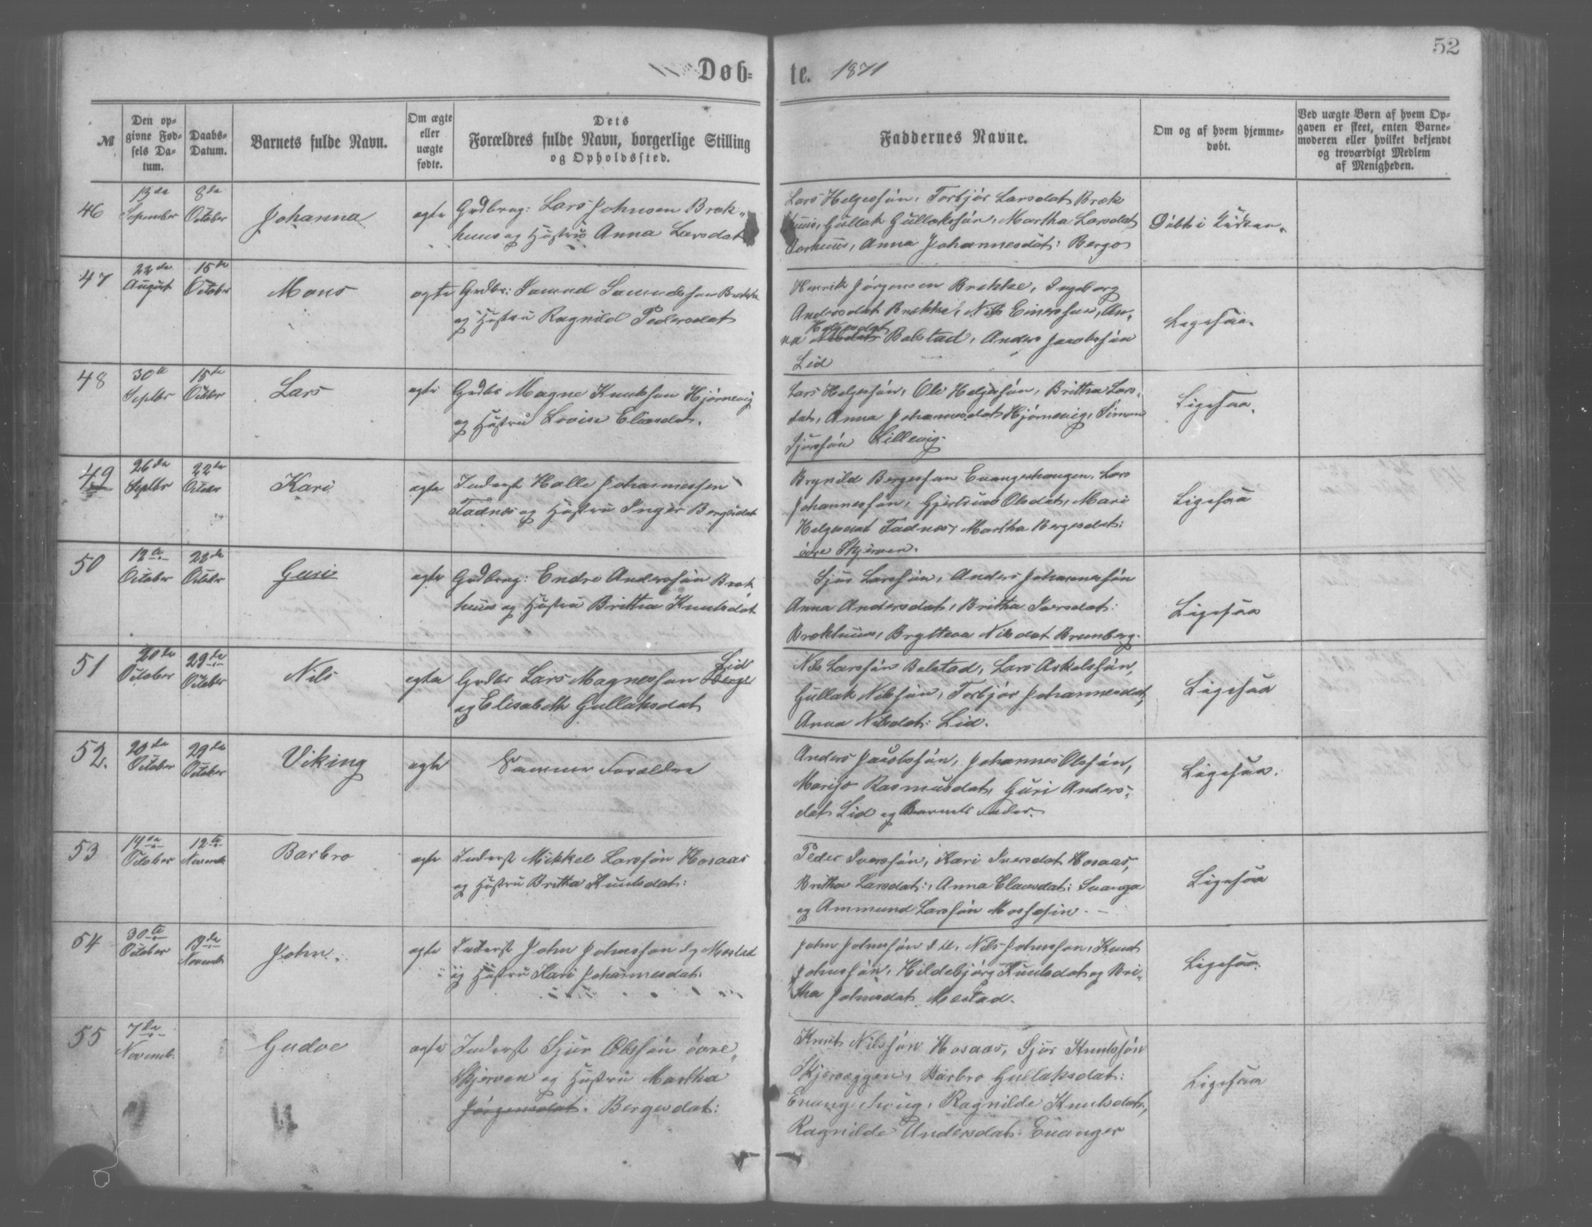 52
Døb- te. 1871
№
Den op-
givne Fød-
sels Da-
tum.
Daabs-
Datum.
Barnets fulde Navn.
Om ægte
eller
uægte
fødte.
Dets
Forældres fulde Navn, borgerlige Stilling
og Opholdssted.
Faddernes Navne.
Om og af hvem hjemme-
døbt.
Ved uægte Børn af hvem Op-
gaven er skeet, enten Barne-
moderen eller hvilket bekjendt
og troværdigt Medlem
af Menigheden.
46
13de
September
8de
October
Johanna
ægte
Grdbrug: Lars Johnsen Bræk-
huus og Hustru Anna Larsdat
Lars Helgesøn, Torbjør Larsdat Bræk
huus, Gullak Gullaksøn, Martha Larsdat
Anna Johannesdat: Berge
Døbt i Kirken.
47
22de
August
15de
October
Mons
ægte
Grdbr: Samund Samundsøn Brekke
og Hustru Ragnild Pedersdat
Henrik Jørgensen Brekke, Ingeborg
Andersdat Brekke, Nils Einersøn, An-
na Helgesdat Bolstad, Anders Jacobsøn
Lid
Ligesaa.
48
30te
Septbr
15de
Octbr
Lars
ægte
Grdbr Magne Knudsøn Hjørnevig
og Hustru Lovise Elisedat.
Lars Helgesøn, Ole Helgesøn, Brittha Lars-
dat, Anna Johannesdat Hjørnevig, Simon
Sjursøn Lillevig.
Ligesaa.
49
26de
Septbr
22de
Octobr
Kari
ægte
Inderst Halle Johannessøn
Fadnes og Hustru Inger Bergesdat
Brynild Bergesøn Evangerhougen, Lars
Johannessøn, Gjertrud Olsdat, Mari
Helgesdat Fadnes, Martha Bergesdat:
øvre Skjerven.
Ligesaa
50
12te
October
22de
October
Guri
ægte
Grdbrug: Endre Andersøn Bræk
huus og Hustru Brittha Knudsdat
Sjur Larssøn, Anders Johannesøn
Anna Andersdat, Britha Iversdat:
Brækhuus, Brytteva Nilsdat Brunborg.
Ligesaa
51
20de
October
29de
October
Nils
ægte
Grdbr Lars Magnessøn Lid
og Elisabeth Gullaksdat
Nils Larssøn Bolstad, Lars Askelsøn,
Gullak Nilsøn, Torbjør Johannesdat,
Anna Nilsdat: Lid.
Ligesaa
52.
20de
October
29de
October
Viking
ægte
Samme Forældre
Anders Jacobsøn, Johannes Olsøn,
Marijo Rasmusdat, Guri Anders-
dat Lid og Barnets Fader.
Ligesaa.
53
14de
October
12te
Novemb
Barbro
ægte
Inderst Mikkel Larssøn Hosaas
og Hustru Britha Knudsdat:
Peder Iverssøn, Kari Iversdat Hosaas,
Britha Larsdat:, Anna Clausdat: Evanger
og Ammund Larssøn
Ligesaa
54
30te
October
19de
Novemb
John.
ægte
Inderst John Johnssøn Mestad
og Hustru Kari Johannesdat:
John Johnssøn, Nils Johnssøn, Knud
Johnssøn, Hildebjørg Knudsdat og Bri-
tha Johnsdat Mestad.
Ligesaa.
55
7de
Novemb.
Gudve
ægte
Inderst Sjur Olsøn øvre
Skjerven og Hustru Martha
Jørgensdat. Bergesdat:
Knud Nilsøn Hosaas, Sjur Knudsøn
Barbro Gullaksdat:
Ragnilde Knudsdat,
Ragnilde Andersdat: Evanger
Ligesaa